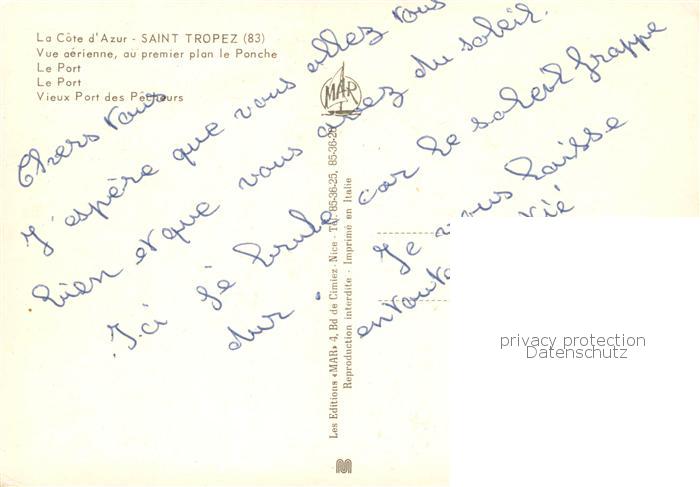 La Côte d'Azur - SAINT TROPEZ (83)
Vue aérienne, au premier plan le Ponche
Le Port
Le Port
Vieux Port des Pêcheurs
MAR
Chers vous
J'espère que vous allez vous
bien et que vous avez du soleil.
Ici je brule car le soleil frappe
dur.
Je vous laisse
en toute
Les Editions «MAR» 4, Bd de Cimiez - Nice - Tél. 85-36-25, 85-36-26
Reproduction interdite - Imprimé en Italie
privacy protection
Datenschutz